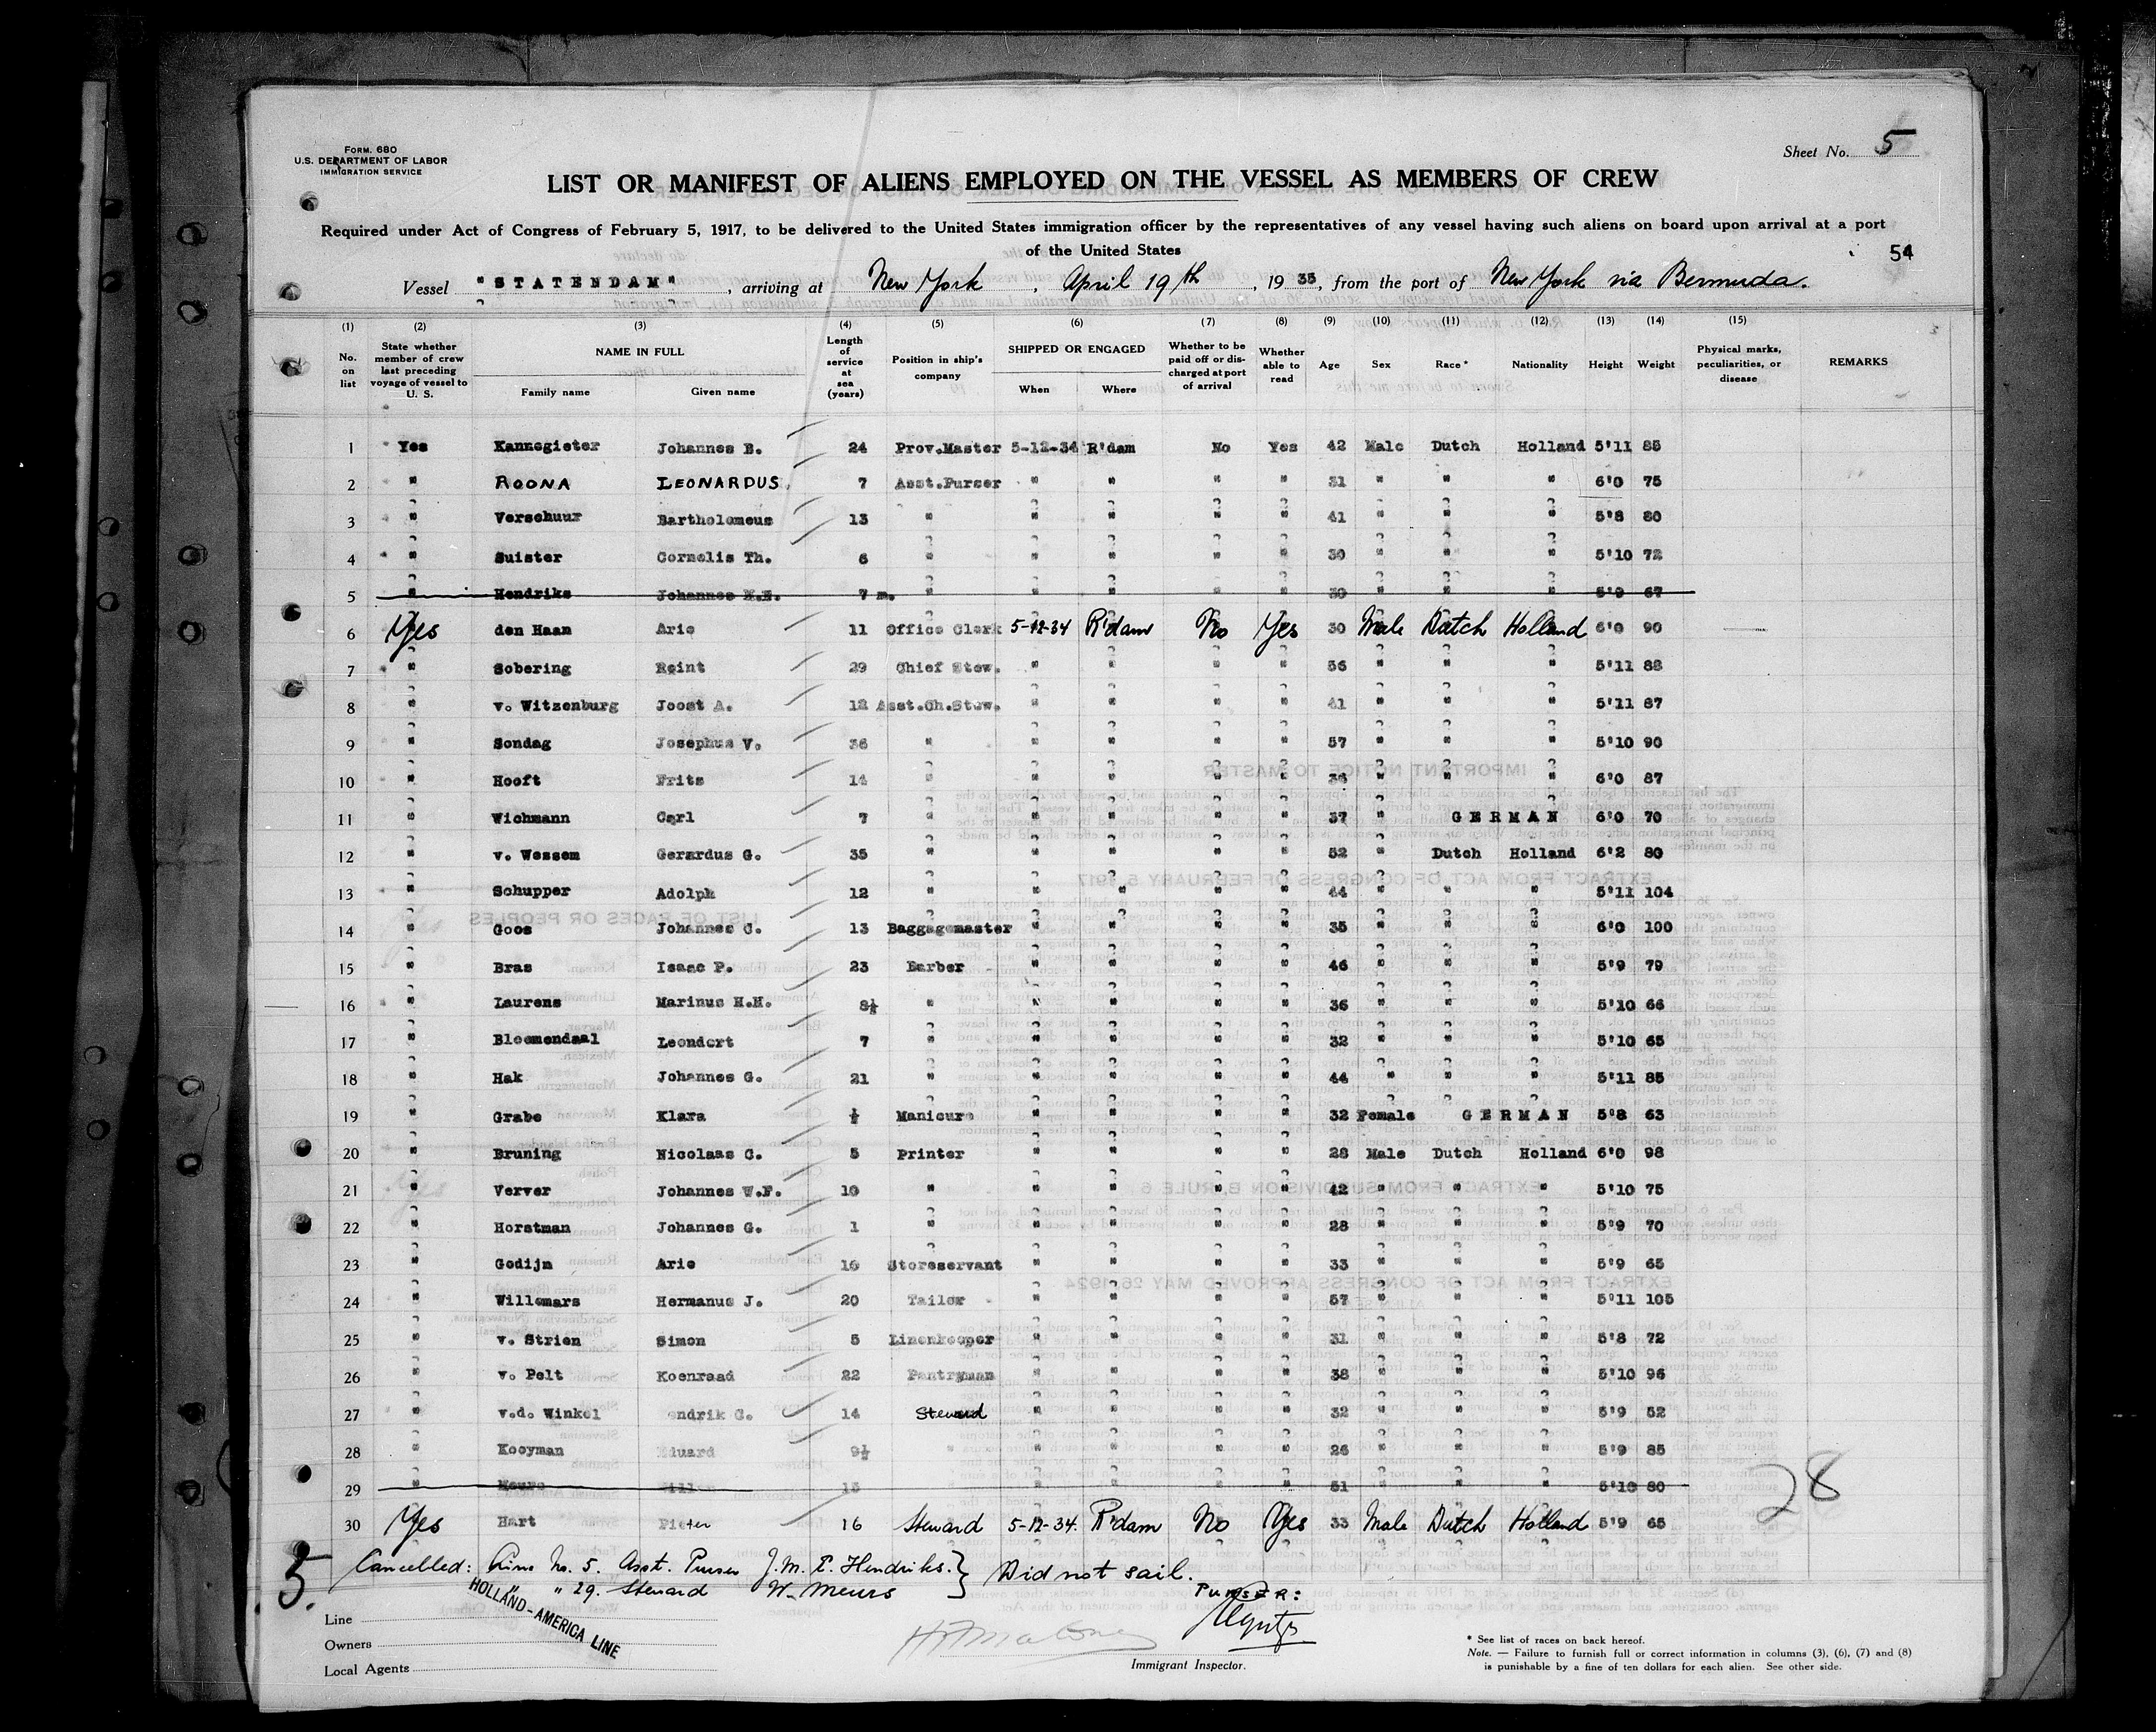 FORM. 680
U.S. DEPARTMENT OF LABOR
IMMIGRATION SERVICE
Sheet No. 5
LIST OR MANIFEST OF ALIENS EMPLOYED ON THE VESSEL AS MEMBERS OF CREW
Required under Act of Congress of February 5, 1917, to be delivered to the United States immigration officer by the representatives of any vessel having such aliens on board upon arrival at a port
of the United States
54
Vessel "STATENDAM", arriving at New York, April 19th, 1935, from the port of New York via Bermuda.
(1) (2) (3) (4) (5) (6) (7) (8) (9) (10) (11) (12) (13) (14) (15)
No. on list | State whether member of crew last preceding voyage of vessel to U. S. | NAME IN FULL Family name Given name | Length of service at sea (years) | Position in ship's company | SHIPPED OR ENGAGED When Where | Whether to be paid off or discharged at port of arrival | Whether able to read | Age | Sex | Race* | Nationality | Height | Weight | Physical marks, peculiarities, or disease | REMARKS
1 Yes Kannegieter Johannes B. 24 Prov.Master 5-12-34 R'dam No Yes 42 Male Dutch Holland 5'11 85
2 " ROONA LEONARDUS. 7 Asst.Purser " " " " 31 " " " 6'0 75
3 " Verschuur Bartholomeus 13 " " " " " 41 " " " 5'8 80
4 " Suister Cornelis Th. 6 " " " " " 30 " " " 5'10 72
5 " Hendriks Johannes 7 m. " " " " " 30 " " " 5'9 67
6 Yes den Haan Arie 11 Office Clerk 5-12-34 R'dam No Yes 30 Male Dutch Holland 6'0 90
7 " Sobering Reint 29 Chief Stew. " " " " 56 " " " 5'11 88
8 " v. Witzenburg Joost A. 12 Asst.Ch.Stew. " " " " 41 " " " 5'11 87
9 " Sondag Josephus V. 36 " " " " " 57 " " " 5'10 90
10 " Hooft Frits 14 " " " " " " " " 6'0 87
11 " Wichmann Carl 7 " " " " " 37 " GERMAN 6'0 70
12 " v. Wessem Gerardus G. 35 " " " " " 52 " Dutch Holland 6'2 80
13 " Schupper Adolph 12 " " " " " 44 " " " 5'11 104
14 " Goos Johannes C. 13 Baggagemaster " " " " 35 " " " 6'0 100
15 " Bras Isaac P. 23 Barber " " " " 46 " " " 5'9 79
16 " Laurens Marinus H.H. 8½ " " " " " 36 " " " 5'10 66
17 " Bloemendaal Leendert 7 " " " " " 32 " " " 5'10 65
18 " Hak Johannes G. 21 " " " " " 44 " " " 5'11 85
19 " Grabe Klara ½ Manicure " " " " 32 Female GERMAN 5'8 63
20 " Bruning Nicolaas C. 5 Printer " " " " 28 Male Dutch Holland 6'0 98
21 " Verver Johannes W.F. 10 " " " " " 42 " " " 5'10 75
22 " Horstman Johannes G. 1 " " " " " 28 " " " 5'9 70
23 " Godijn Arie 10 Storeservant " " " " 33 " " " 5'9 65
24 " Willemars Hermanus J. 20 Tailor " " " " 57 " " " 5'11 105
25 " v. Strien Simon 5 Linenkeeper " " " " 31 " " " 5'8 72
26 " v. Pelt Koenraad 22 Pantryman " " " " 38 " " " 5'10 96
27 " v.d. Winkel endrik G. 14 Steward " " " " 32 " " " 5'9 52
28 " Kooyman Eduard 9½ " " " " " 26 " " " 5'9 85
29 " Meurs 15 " " " " 51 " " " 5'10 80
30 Yes Hart Pieter 16 Steward 5-12-34. R'dam No Yes 33 Male Dutch Holland 5'9 65
28
5.
Cancelled: Line No. 5. Asst. Purser J.M.E. Hendriks. } Did not sail.
" " 29. Steward W. Meurs
PURSER:
HOLLAND-AMERICA LINE
Line
Owners
Local Agents
Immigrant Inspector.
* See list of races on back hereof.
Note. — Failure to furnish full or correct information in columns (3), (6), (7) and (8)
is punishable by a fine of ten dollars for each alien. See other side.